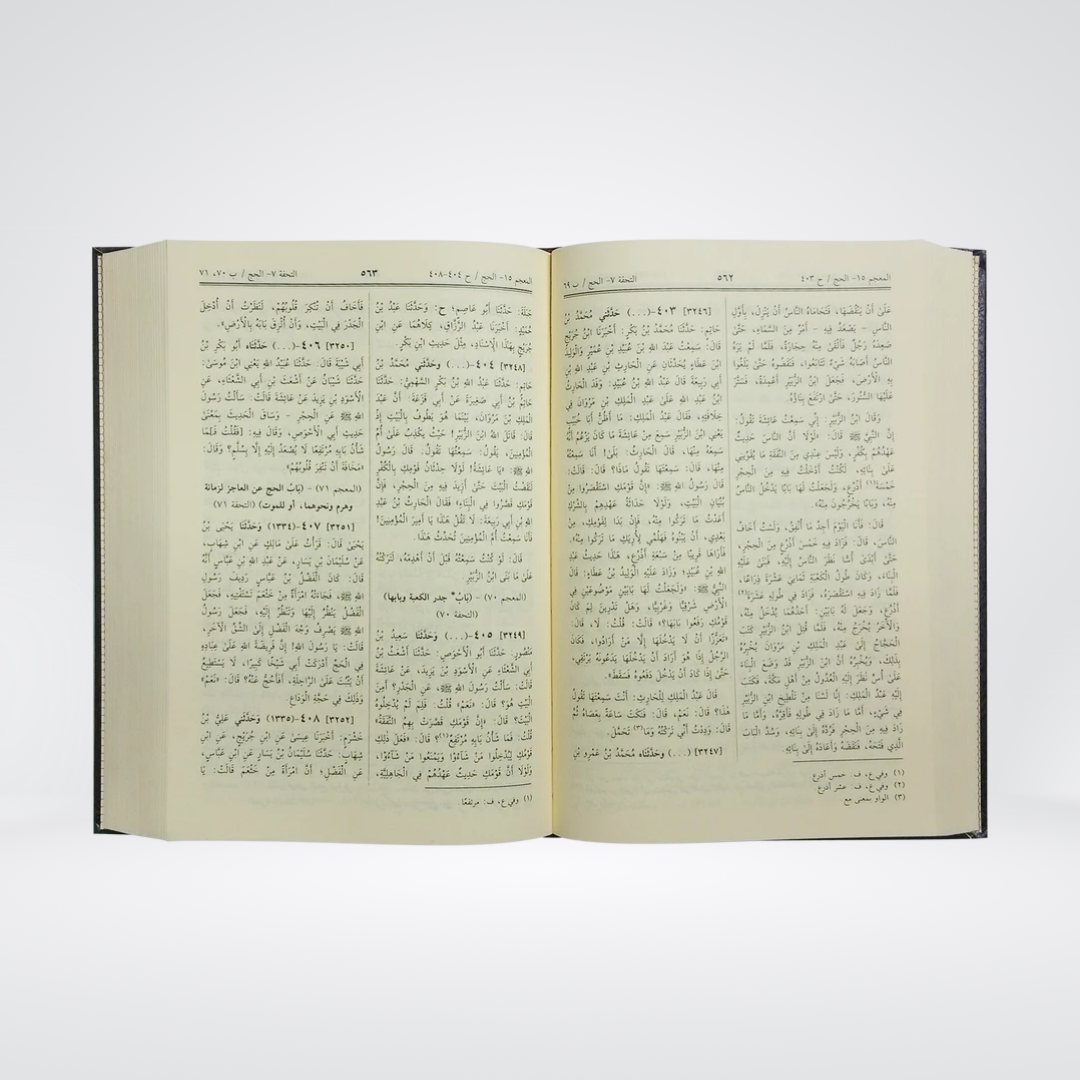 المعجم ١٥- الحج / ح ٤٠٣
٥٦٢
التحفة ٧- الحج / ب ٦٩
عَلَىٰ أَنْ يَنْقُضَهَا، فَتَحَامَاهُ النَّاسُ أَنْ يَنْزِلَ، بِأَوَّلِ
النَّاسِ - يَصْعَدُ فِيهِ - أَمْرٌ مِنَ السَّمَاءِ، حَتَّىٰ
صَعِدَهُ رَجُلٌ فَأَلْقَىٰ مِنْهُ حِجَارَةً، فَلَمَّا لَمْ يَرَهُ
النَّاسُ أَصَابَهُ شَيْءٌ تَتَابَعُوا، فَنَقَضُوهُ حَتَّىٰ بَلَغُوا
بِهِ الْأَرْضَ، فَجَعَلَ ابْنُ الزُّبَيْرِ أَعْمِدَةً، فَسَتَّرَ
عَلَيْهَا السُّتُورَ، حَتَّىٰ ارْتَفَعَ بِنَاؤُهُ.
وَقَالَ ابْنُ الزُّبَيْرِ: إِنِّي سَمِعْتُ عَائِشَةَ تَقُولُ:
إِنَّ النَّبِيَّ ﷺ قَالَ: «لَوْلَا أَنَّ النَّاسَ حَدِيثٌ
عَهْدُهُمْ بِكُفْرٍ، وَلَيْسَ عِنْدِي مِنَ النَّفَقَةِ مَا يُقَوِّينِي
عَلَىٰ بِنَائِهِ، لَكُنْتُ أَدْخَلْتُ فِيهِ مِنَ الْحِجْرِ
خَمْسَةَ(١) أَذْرُعٍ، وَلَجَعَلْتُ لَهَا بَابًا يَدْخُلُ النَّاسُ
مِنْهُ، وَبَابًا يَخْرُجُونَ مِنْهُ».
قَالَ: فَأَنَا الْيَوْمَ أَجِدُ مَا أُنْفِقُ، وَلَسْتُ أَخَافُ
النَّاسَ، قَالَ: فَزَادَ فِيهِ خَمْسَ أَذْرُعٍ مِنَ الْحِجْرِ،
حَتَّىٰ أَبْدَىٰ أُسًّا نَظَرَ النَّاسُ إِلَيْهِ، فَبَنَىٰ عَلَيْهِ
الْبِنَاءَ، وَكَانَ طُولُ الْكَعْبَةِ ثَمَانِيَ عَشْرَةَ ذِرَاعًا،
فَلَمَّا زَادَ فِيهِ اسْتَقْصَرَهُ، فَزَادَ فِي طُولِهِ عَشْرَةَ(٢)
أَذْرُعٍ، وَجَعَلَ لَهُ بَابَيْنِ: أَحَدُهُمَا يُدْخَلُ مِنْهُ،
وَالْآخَرُ يُخْرَجُ مِنْهُ، فَلَمَّا قُتِلَ ابْنُ الزُّبَيْرِ كَتَبَ
الْحَجَّاجُ إِلَىٰ عَبْدِ الْمَلِكِ بْنِ مَرْوَانَ يُخْبِرُهُ
بِذٰلِكَ، وَيُخْبِرُهُ أَنَّ ابْنَ الزُّبَيْرِ قَدْ وَضَعَ الْبِنَاءَ
عَلَىٰ أُسٍّ نَظَرَ إِلَيْهِ الْعُدُولُ مِنْ أَهْلِ مَكَّةَ، فَكَتَبَ
إِلَيْهِ عَبْدُ الْمَلِكِ: إِنَّا لَسْنَا مِنْ تَلْطِيخِ ابْنِ الزُّبَيْرِ
فِي شَيْءٍ، أَمَّا مَا زَادَ فِي طُولِهِ فَأَقِرَّهُ، وَأَمَّا مَا
زَادَ فِيهِ مِنَ الْحِجْرِ فَرُدَّهُ إِلَىٰ بِنَائِهِ، وَسُدَّ الْبَابَ
الَّذِي فَتَحَهُ، فَنَقَضَهُ وَأَعَادَهُ إِلَىٰ بِنَائِهِ.
[٣٢٤٦] ٤٠٣-(...) حَدَّثَنِي مُحَمَّدُ بْنُ
حَاتِمٍ: حَدَّثَنَا مُحَمَّدُ بْنُ بَكْرٍ: أَخْبَرَنَا ابْنُ جُرَيْجٍ
قَالَ: سَمِعْتُ عَبْدَ اللهِ بْنَ عُبَيْدِ بْنِ عُمَيْرٍ وَالْوَلِيدَ
ابْنَ عَطَاءٍ يُحَدِّثَانِ عَنِ الْحَارِثِ بْنِ عَبْدِ اللهِ بْنِ
أَبِي رَبِيعَةَ قَالَ عَبْدُ اللهِ بْنُ عُبَيْدٍ: وَفَدَ الْحَارِثُ
ابْنُ عَبْدِ اللهِ عَلَىٰ عَبْدِ الْمَلِكِ بْنِ مَرْوَانَ فِي
خِلَافَتِهِ، فَقَالَ عَبْدُ الْمَلِكِ: مَا أَظُنُّ أَبَا خُبَيْبٍ
يَعْنِي ابْنَ الزُّبَيْرِ سَمِعَ مِنْ عَائِشَةَ مَا كَانَ يَزْعُمُ أَنَّهُ
سَمِعَهُ مِنْهَا، قَالَ الْحَارِثُ: بَلَىٰ! أَنَا سَمِعْتُهُ
مِنْهَا، قَالَ: سَمِعْتَهَا تَقُولُ مَاذَا؟ قَالَ: قَالَتْ:
قَالَ رَسُولُ اللهِ ﷺ: «إِنَّ قَوْمَكِ اسْتَقْصَرُوا مِنْ
بُنْيَانِ الْبَيْتِ، وَلَوْلَا حَدَاثَةُ عَهْدِهِمْ بِالشِّرْكِ
أَعَدْتُ مَا تَرَكُوا مِنْهُ، فَإِنْ بَدَا لِقَوْمِكِ، مِنْ
بَعْدِي، أَنْ يَبْنُوهُ فَهَلُمِّي لِأُرِيَكِ مَا تَرَكُوا مِنْهُ».
فَأَرَاهَا قَرِيبًا مِنْ سَبْعَةِ أَذْرُعٍ، هٰذَا حَدِيثُ عَبْدِ
اللهِ بْنِ عُبَيْدٍ؛ وَزَادَ عَلَيْهِ الْوَلِيدُ بْنُ عَطَاءٍ: قَالَ
النَّبِيُّ ﷺ: «وَلَجَعَلْتُ لَهَا بَابَيْنِ مَوْضُوعَيْنِ فِي
الْأَرْضِ شَرْقِيًّا وَغَرْبِيًّا، وَهَلْ تَدْرِينَ لِمَ كَانَ
قَوْمُكِ رَفَعُوا بَابَهَا؟» قَالَتْ: قُلْتُ: لَا، قَالَ:
«تَعَزُّزًا أَنْ لَا يَدْخُلَهَا إِلَّا مَنْ أَرَادُوا، فَكَانَ
الرَّجُلُ إِذَا هُوَ أَرَادَ أَنْ يَدْخُلَهَا يَدَعُونَهُ يَرْتَقِي،
حَتَّىٰ إِذَا كَادَ أَنْ يَدْخُلَ دَفَعُوهُ فَسَقَطَ».
قَالَ عَبْدُ الْمَلِكِ لِلْحَارِثِ: أَنْتَ سَمِعْتَهَا تَقُولُ
هٰذَا؟ قَالَ: نَعَمْ، قَالَ: فَنَكَتَ سَاعَةً بِعَصَاهُ ثُمَّ
قَالَ: وَدِدْتُ أَنِّي تَرَكْتُهُ وَمَا(٣) تَحَمَّلَ.
[٣٢٤٧] (...) وَحَدَّثَنَاه مُحَمَّدُ بْنُ عَمْرِو بْنِ
(١) وفي ع، ف: خمس أذرع
(٢) وفي ع، ف: عشر أذرع
(٣) الواو بمعنى مع
المعجم ١٥- الحج / ح ٤٠٤-٤٠٨
٥٦٣
التحفة ٧- الحج / ب ٧٠، ٧١
جَبَلَةَ: حَدَّثَنَا أَبُو عَاصِمٍ؛ ح: وَحَدَّثَنَا عَبْدُ بْنُ
حُمَيْدٍ: أَخْبَرَنَا عَبْدُ الرَّزَّاقِ، كِلَاهُمَا عَنِ ابْنِ
جُرَيْجٍ بِهٰذَا الْإِسْنَادِ، مِثْلَ حَدِيثِ ابْنِ بَكْرٍ.
[٣٢٤٨] ٤٠٤-(...) وحَدَّثَنِي مُحَمَّدُ بْنُ
حَاتِمٍ: حَدَّثَنَا عَبْدُ اللهِ بْنُ بَكْرٍ السَّهْمِيُّ: حَدَّثَنَا
حَاتِمُ بْنُ أَبِي صَغِيرَةَ عَنْ أَبِي قَزَعَةَ: أَنَّ عَبْدَ
الْمَلِكِ بْنَ مَرْوَانَ، بَيْنَمَا هُوَ يَطُوفُ بِالْبَيْتِ إِذْ
قَالَ: قَاتَلَ اللهُ ابْنَ الزُّبَيْرِ! حَيْثُ يَكْذِبُ عَلَىٰ أُمِّ
الْمُؤْمِنِينَ، يَقُولُ: سَمِعْتُهَا تَقُولُ: قَالَ رَسُولُ
اللهِ ﷺ: «يَا عَائِشَةُ! لَوْلَا حِدْثَانُ قَوْمِكِ بِالْكُفْرِ
لَنَقَضْتُ الْبَيْتَ حَتَّىٰ أَزِيدَ فِيهِ مِنَ الْحِجْرِ، فَإِنَّ
قَوْمَكِ قَصَّرُوا فِي الْبِنَاءِ» فَقَالَ الْحَارِثُ بْنُ عَبْدِ
اللهِ بْنِ أَبِي رَبِيعَةَ: لَا تَقُلْ هٰذَا يَا أَمِيرَ الْمُؤْمِنِينَ!
فَأَنَا سَمِعْتُ أُمَّ الْمُؤْمِنِينَ تُحَدِّثُ هٰذَا.
قَالَ: لَوْ كُنْتُ سَمِعْتُهُ قَبْلَ أَنْ أَهْدِمَهُ، لَتَرَكْتُهُ
عَلَىٰ مَا بَنَى ابْنُ الزُّبَيْرِ.
(المعجم ٧٠) - (بَابُ جدر الكعبة وبابها)
(التحفة ٧٠)
[٣٢٤٩] ٤٠٥-(...) وَحَدَّثَنَا سَعِيدُ بْنُ
مَنْصُورٍ: حَدَّثَنَا أَبُو الْأَحْوَصِ: حَدَّثَنَا أَشْعَثُ بْنُ
أَبِي الشَّعْثَاءِ عَنِ الْأَسْوَدِ بْنِ يَزِيدَ، عَنْ عَائِشَةَ
قَالَتْ: سَأَلْتُ رَسُولَ اللهِ ﷺ، عَنِ الْجَدْرِ؟ أَمِنَ
الْبَيْتِ هُوَ؟ قَالَ: «نَعَمْ» قُلْتُ: فَلِمَ لَمْ يُدْخِلُوهُ
الْبَيْتَ؟ قَالَ: «إِنَّ قَوْمَكِ قَصَّرَتْ بِهِمُ النَّفَقَةُ»
قُلْتُ: فَمَا شَأْنُ بَابِهِ مُرْتَفِعٌ(١)؟ قَالَ: «فَعَلَ ذٰلِكِ
قَوْمُكِ لِيُدْخِلُوا مَنْ شَاءُوا وَيَمْنَعُوا مَنْ شَاءُوا،
وَلَوْلَا أَنَّ قَوْمَكِ حَدِيثٌ عَهْدُهُمْ فِي الْجَاهِلِيَّةِ،
(١) وفي ع، ف: مرتفعًا.
فَأَخَافُ أَنْ تُنْكِرَ قُلُوبُهُمْ، لَنَظَرْتُ أَنْ أُدْخِلَ
الْجَدْرَ فِي الْبَيْتِ، وَأَنْ أُلْزِقَ بَابَهُ بِالْأَرْضِ».
[٣٢٥٠] ٤٠٦-(...) حَدَّثَنَاه أَبُو بَكْرِ بْنُ
أَبِي شَيْبَةَ قَالَ: حَدَّثَنَا عُبَيْدُ اللهِ يَعْنِي ابْنَ مُوسَىٰ:
حَدَّثَنَا شَيْبَانُ عَنْ أَشْعَثَ بْنِ أَبِي الشَّعْثَاءِ، عَنِ
الْأَسْوَدِ بْنِ يَزِيدَ عَنْ عَائِشَةَ قَالَتْ: سَأَلْتُ رَسُولَ
اللهِ ﷺ عَنِ الْحِجْرِ - وَسَاقَ الْحَدِيثَ بِمَعْنَىٰ
حَدِيثِ أَبِي الْأَحْوَصِ، وَقَالَ فِيهِ: [فَقُلْتُ فَ]مَا
شَأْنُ بَابِهِ مُرْتَفِعًا لَا يُصْعَدُ إِلَيْهِ إِلَّا بِسُلَّمٍ؟ وَقَالَ:
«مَخَافَةَ أَنْ تَنْفِرَ قُلُوبُهُمْ»
(المعجم ٧١) - (بَابُ الحج عن العاجز لزمانة
وهرم ونحوهما، أو للموت) (التحفة ٧١)
[٣٢٥١] ٤٠٧-(١٣٣٤) وَحَدَّثَنَا يَحْيَىٰ بْنُ
يَحْيَىٰ قَالَ: قَرَأْتُ عَلَىٰ مَالِكٍ عَنِ ابْنِ شِهَابٍ،
عَنْ سُلَيْمَانَ بْنِ يَسَارٍ، عَنْ عَبْدِ اللهِ بْنِ عَبَّاسٍ أَنَّهُ
قَالَ: كَانَ الْفَضْلُ بْنُ عَبَّاسٍ رَدِيفَ رَسُولِ
اللهِ ﷺ، فَجَاءَتْهُ امْرَأَةٌ مِنْ خَثْعَمَ تَسْتَفْتِيهِ، فَجَعَلَ
الْفَضْلُ يَنْظُرُ إِلَيْهَا وَتَنْظُرُ إِلَيْهِ، فَجَعَلَ رَسُولُ
اللهِ ﷺ يَصْرِفُ وَجْهَ الْفَضْلِ إِلَى الشِّقِّ الْآخَرِ،
قَالَتْ: يَا رَسُولَ اللهِ! إِنَّ فَرِيضَةَ اللهِ عَلَىٰ عِبَادِهِ
فِي الْحَجِّ أَدْرَكَتْ أَبِي شَيْخًا كَبِيرًا، لَا يَسْتَطِيعُ
أَنْ يَثْبُتَ عَلَى الرَّاحِلَةِ، أَفَأَحُجُّ عَنْهُ؟ قَالَ: «نَعَمْ»
وَذٰلِكَ فِي حَجَّةِ الْوَدَاعِ.
[٣٢٥٢] ٤٠٨-(١٣٣٥) وَحَدَّثَنِي عَلِيُّ بْنُ
خَشْرَمٍ: أَخْبَرَنَا عِيسَىٰ عَنِ ابْنِ جُرَيْجٍ، عَنِ ابْنِ
شِهَابٍ: حَدَّثَنَا سُلَيْمَانُ بْنُ يَسَارٍ عَنِ ابْنِ عَبَّاسٍ،
عَنِ الْفَضْلِ؛ أَنَّ امْرَأَةً مِنْ خَثْعَمَ قَالَتْ: يَا